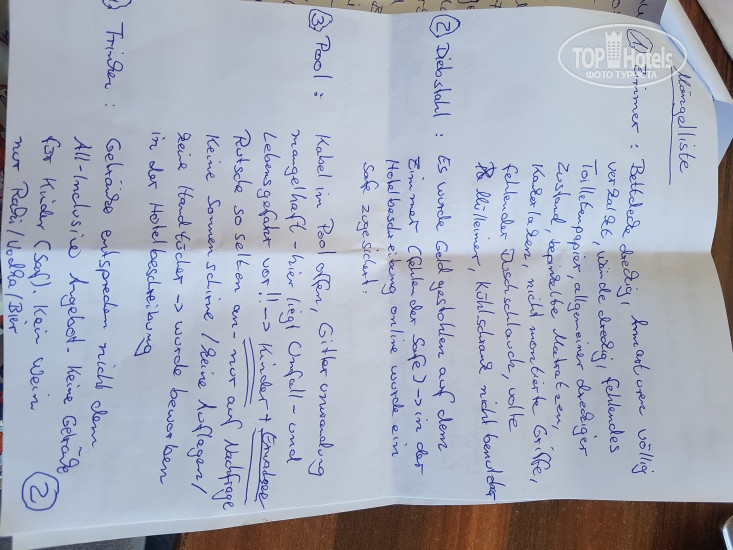 Mängelliste
① Zimmer : Bettdecke dreckig, Armaturen völlig
verkalkt, Wände dreckig, fehlendes
Toilettenpapier, allgemeiner dreckiger
Zustand, kaputte Matratzen,
Kakerlaken, nicht montierte Griffe,
fehlender Duschschlauch, volle
Mülleimer, Kühlschrank nicht benutzbar
② Diebstahl : Es wurde Geld gestohlen auf dem
Zimmer (fehlender Safe) → in der
Hotelbeschreibung online wurde ein
Safe zugesichert.
③ Pool : Kabel im Pool offen, Gitterumrandung
mangelhaft - hier liegt Unfall- und
Lebensgefahr vor!! → Kinder + Erwachsene
Rutsche so selten an - nur auf Nachfrage
Keine Sonnenschirme / keine Auflagen /
keine Handtücher → wurde beworben
in der Hotelbeschreibung
Trinken : Getränke entsprechen nicht dem
All-Inclusive Angebot. Keine Getränke
für Kinder (Saft). Kein Wein
nur Raki / Vodka / Bier
②
TOP Hotels
ФОТО ТУРИСТА